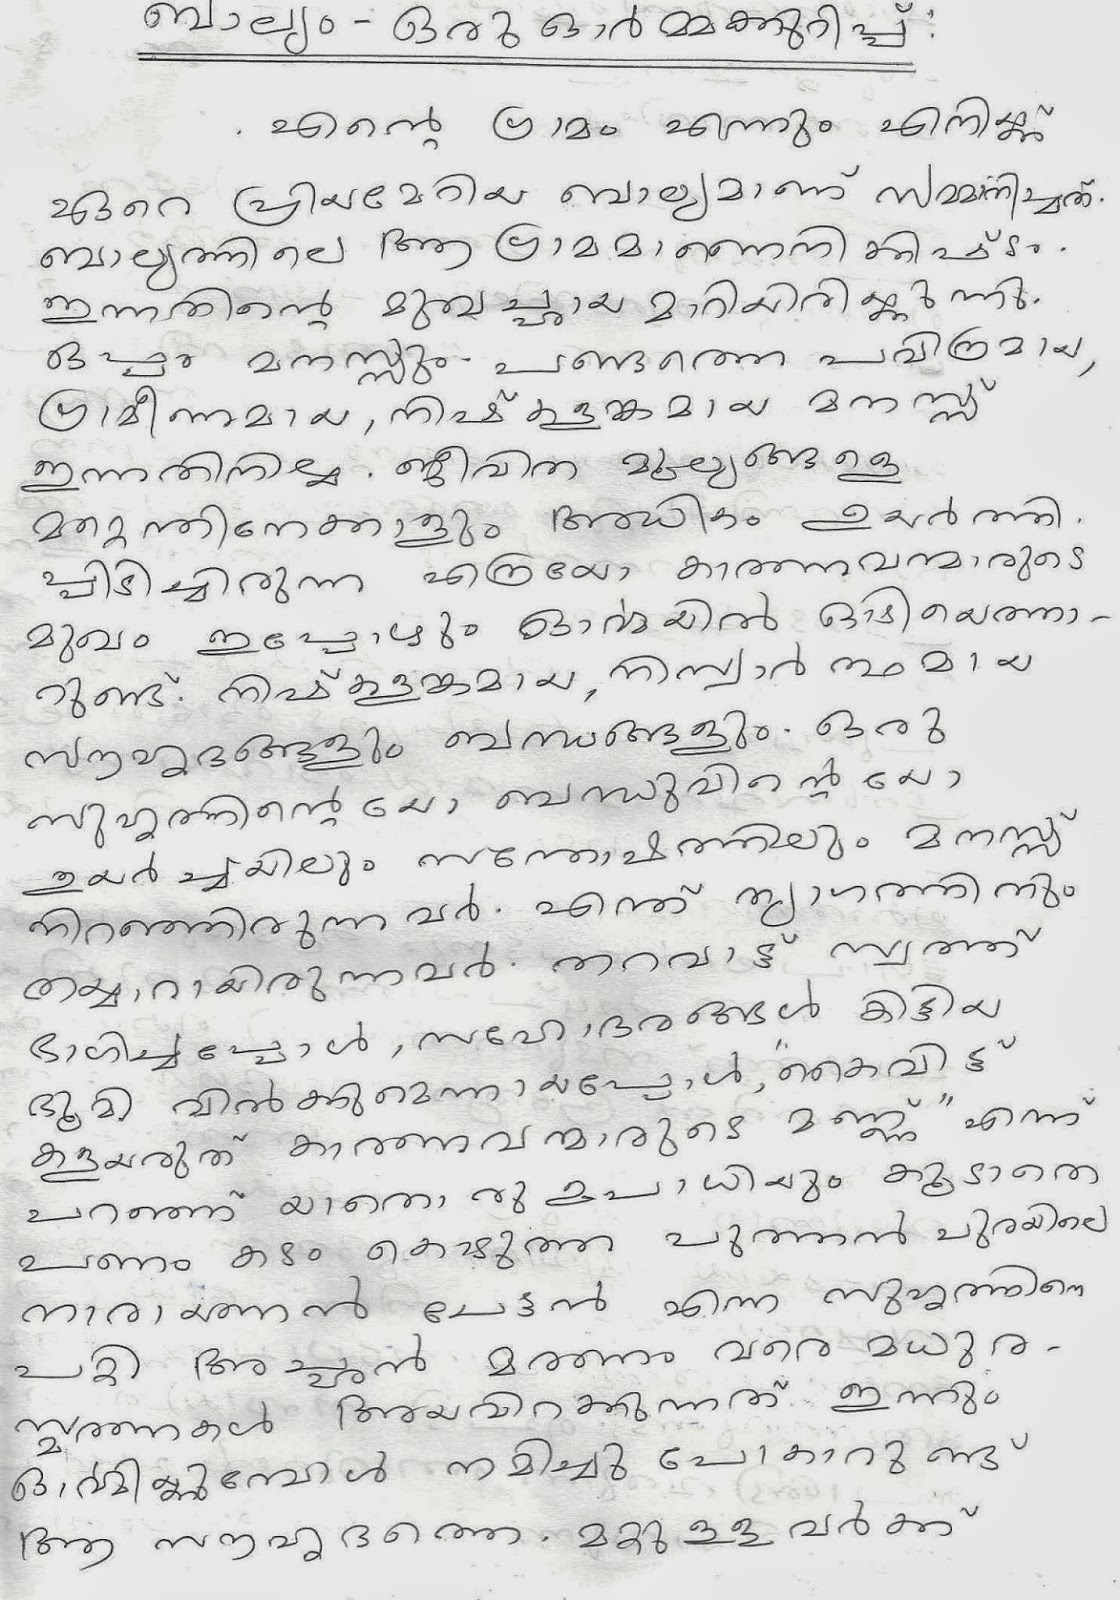 ബാല്യം - ഒരു ഓർമ്മക്കുറിപ്പ്:
എന്റെ ഗ്രാമം എന്നും എനിയ്ക്ക്
ഏറെ പ്രിയമേറിയ ബാല്യമാണ് സമ്മാനിച്ചത്.
ബാല്യത്തിലെ ആ ഗ്രാമമാണെനിക്കിഷ്ടം.
ഇന്നതിന്റെ മുഖച്ഛായ മാറിയിരിയ്ക്കുന്നു.
ഒപ്പം മനസ്സും. പണ്ടത്തെ പവിത്രമായ,
ഗ്രാമീണമായ, നിഷ്കളങ്കമായ മനസ്സ്
ഇന്നതിനില്ല. ജീവിത മൂല്യങ്ങളെ
മറ്റെന്തിനേക്കാളും അധികം ഉയർത്തി.
പ്പിടിച്ചിരുന്ന എത്രയോ കാരണവന്മാരുടെ
മുഖം ഇപ്പോഴും ഓർമ്മയിൽ ഓടിയെത്താ-
റുണ്ട്. നിഷ്കളങ്കമായ, നിസ്വാർത്ഥമായ
സൗഹൃദങ്ങളും ബന്ധങ്ങളും. ഒരു
സുഹൃത്തിന്റെയോ ബന്ധുവിന്റെയോ
ഉയർച്ചയിലും സന്തോഷത്തിലും മനസ്സ്
നിറഞ്ഞിരുന്നവർ. എന്ത് ത്യാഗത്തിനും
തയ്യാറായിരുന്നവർ. തറവാട്ട് സ്വത്ത്
ഭാഗിച്ചപ്പോൾ, സഹോദരങ്ങൾ കിട്ടിയ
ഭൂമി വിൽക്കുമെന്നായപ്പോൾ, "കൈവിട്ട്
കളയരുത് കാരണവന്മാരുടെ മണ്ണ്" എന്ന്
പറഞ്ഞ് യാതൊരു ഉപാധിയും കൂടാതെ
പണം കടം കൊടുത്ത പുത്തൻ പുരയിലെ
നാരായണൻ ചേട്ടൻ എന്ന സുഹൃത്തിനെ
പറ്റി അച്ഛൻ മരണം വരെ മധുര-
സ്മരണകൾ അയവിറക്കുന്നത് ഇന്നും
ഓർമ്മിയ്ക്കുമ്പോൾ നമിച്ചു പോകാറുണ്ട്
ആ സൗഹൃദത്തെ. മറ്റുള്ളവർക്ക്